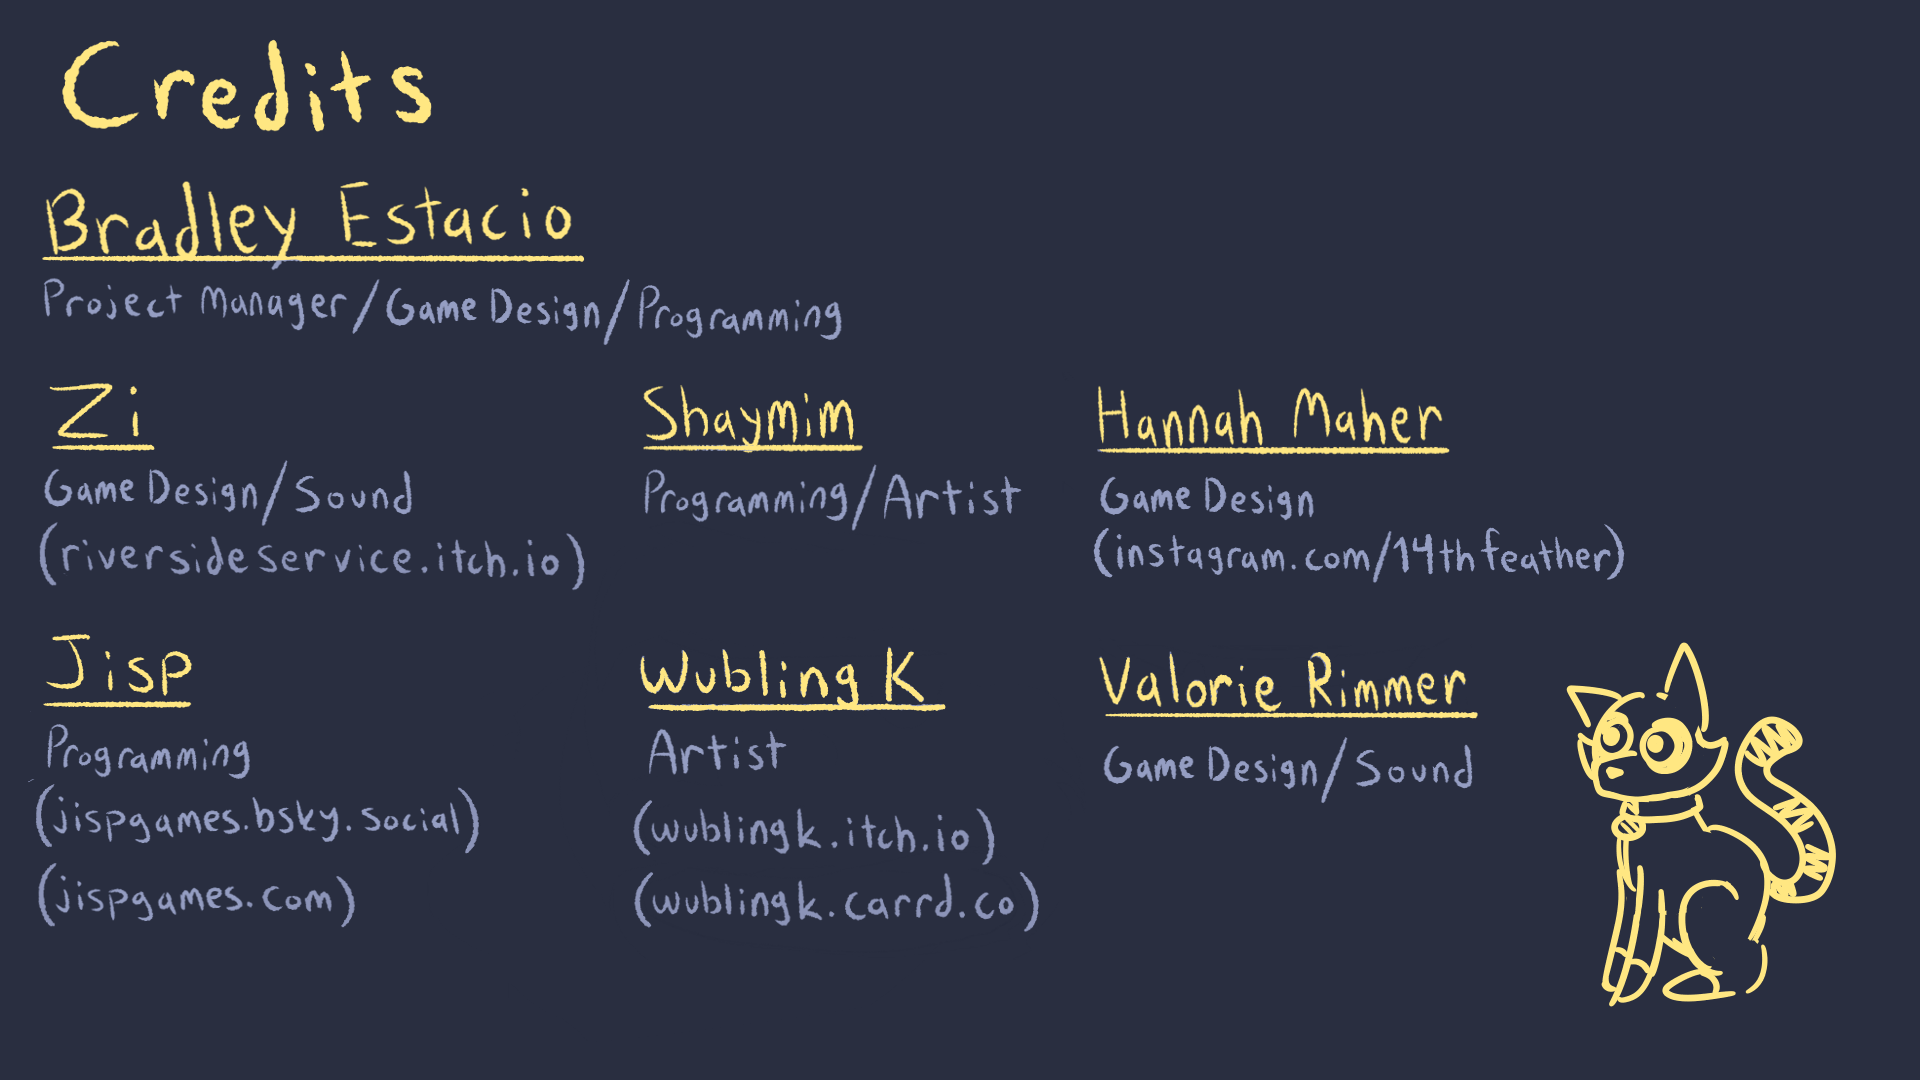 Credits
Bradley Estacio
Project Manager/Game Design/Programming
Zi
Game Design/Sound
(riversideservice.itch.io)
Shaymim
Programming/Artist
Hannah Maher
Game Design
(instagram.com/14thfeather)
Jisp
Programming
(jispgames.bsky.social)
(jispgames.com)
Wubling K
Artist
(wublingk.itch.io)
(wublingk.carrd.co)
Valorie Rimmer
Game Design/Sound